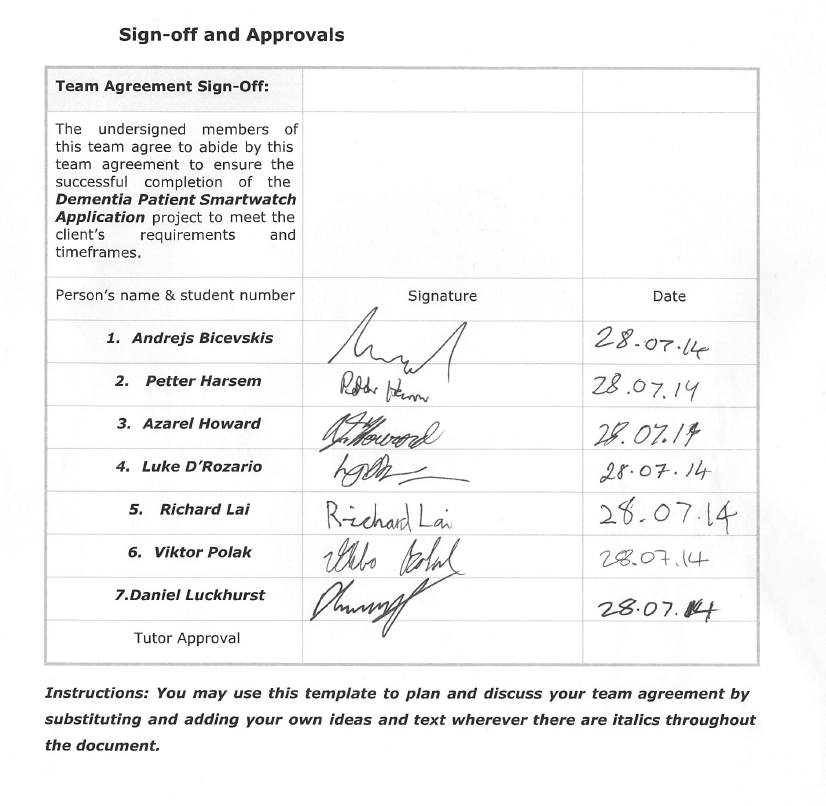 Sign-off and Approvals
Team Agreement Sign-Off:
The undersigned members of
this team agree to abide by this
team agreement to ensure the
successful completion of the
Dementia Patient Smartwatch
Application project to meet the
client's requirements and
timeframes.
Person's name & student number Signature Date
1. Andrejs Bicevskis 28.07.14
2. Petter Harsem 28.07.14
3. Azarel Howard A. Howard 28.07.14
4. Luke D'Rozario 28.07.14
5. Richard Lai Richard Lai 28.07.14
6. Viktor Polak 28.07.14
7.Daniel Luckhurst 28.07.14
Tutor Approval
Instructions: You may use this template to plan and discuss your team agreement by
substituting and adding your own ideas and text wherever there are italics throughout
the document.